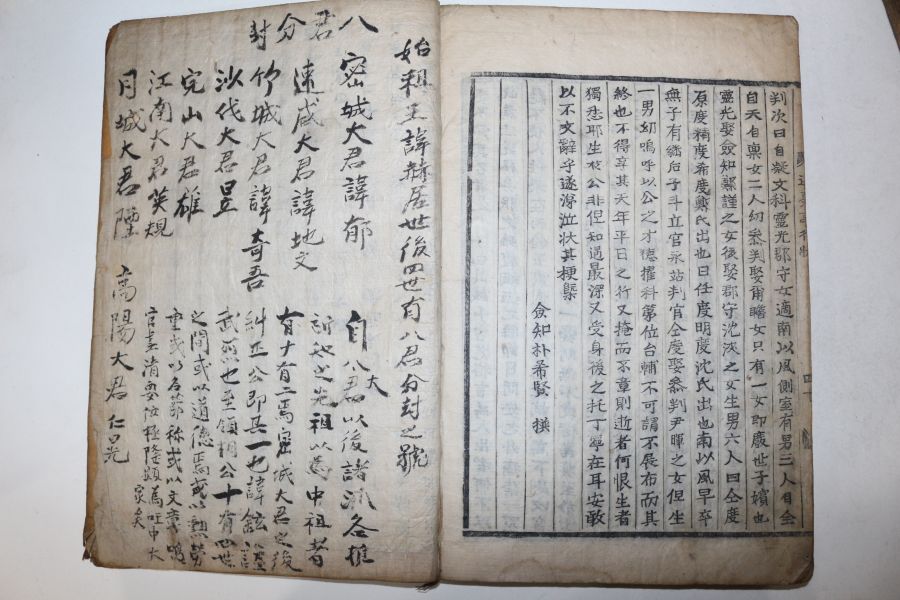 判次曰自凝文科靈光郡守女適南以風側室有男三人自全
自天自稟女二人幼參判娶甫瞻女只有一女即廢世子嬪也
靈光娶僉知謹之女後娶郡守沈之女生男六人曰全度
原度精度希度鄭氏出也曰任度明度沈氏出也南以風早卒
無子有繼后子斗立官永站判官全度娶參判尹暉之女但生
一男幼嗚呼以公之才德擢科第位台輔不可謂不展布而其
終也不得享其天年平日之行又掩而不章則逝者何恨生者
獨愁耶生於公非但知遇最深又受身後之托丁寧在耳安敢
以不文辭乎遂泣状其梗槩
僉知朴希賢 撰
始祖王諱赫居世後四世有八君分封之號
八君分封
密城大君諱郁
速咸大君諱地文
竹城大君諱奇吾
沙伐大君昱
完山大君雄
江南大君英規
月城大君陞
高陽大君仁晃
自八大君以後諸派各推
所地之先祖以為中祖者
有十有二焉密城大君之後
糾正公即其一也諱鉉
武也至領相公十有四世
之間或以道德焉或以勲勞
重或以名節称或以文章鳴
官盡清要位極隆顕為中大
家矣